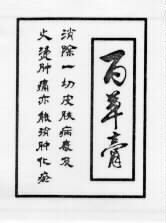 百草膏
消除一切皮肤病毒及
火烫肿痛亦能消肿化瘀